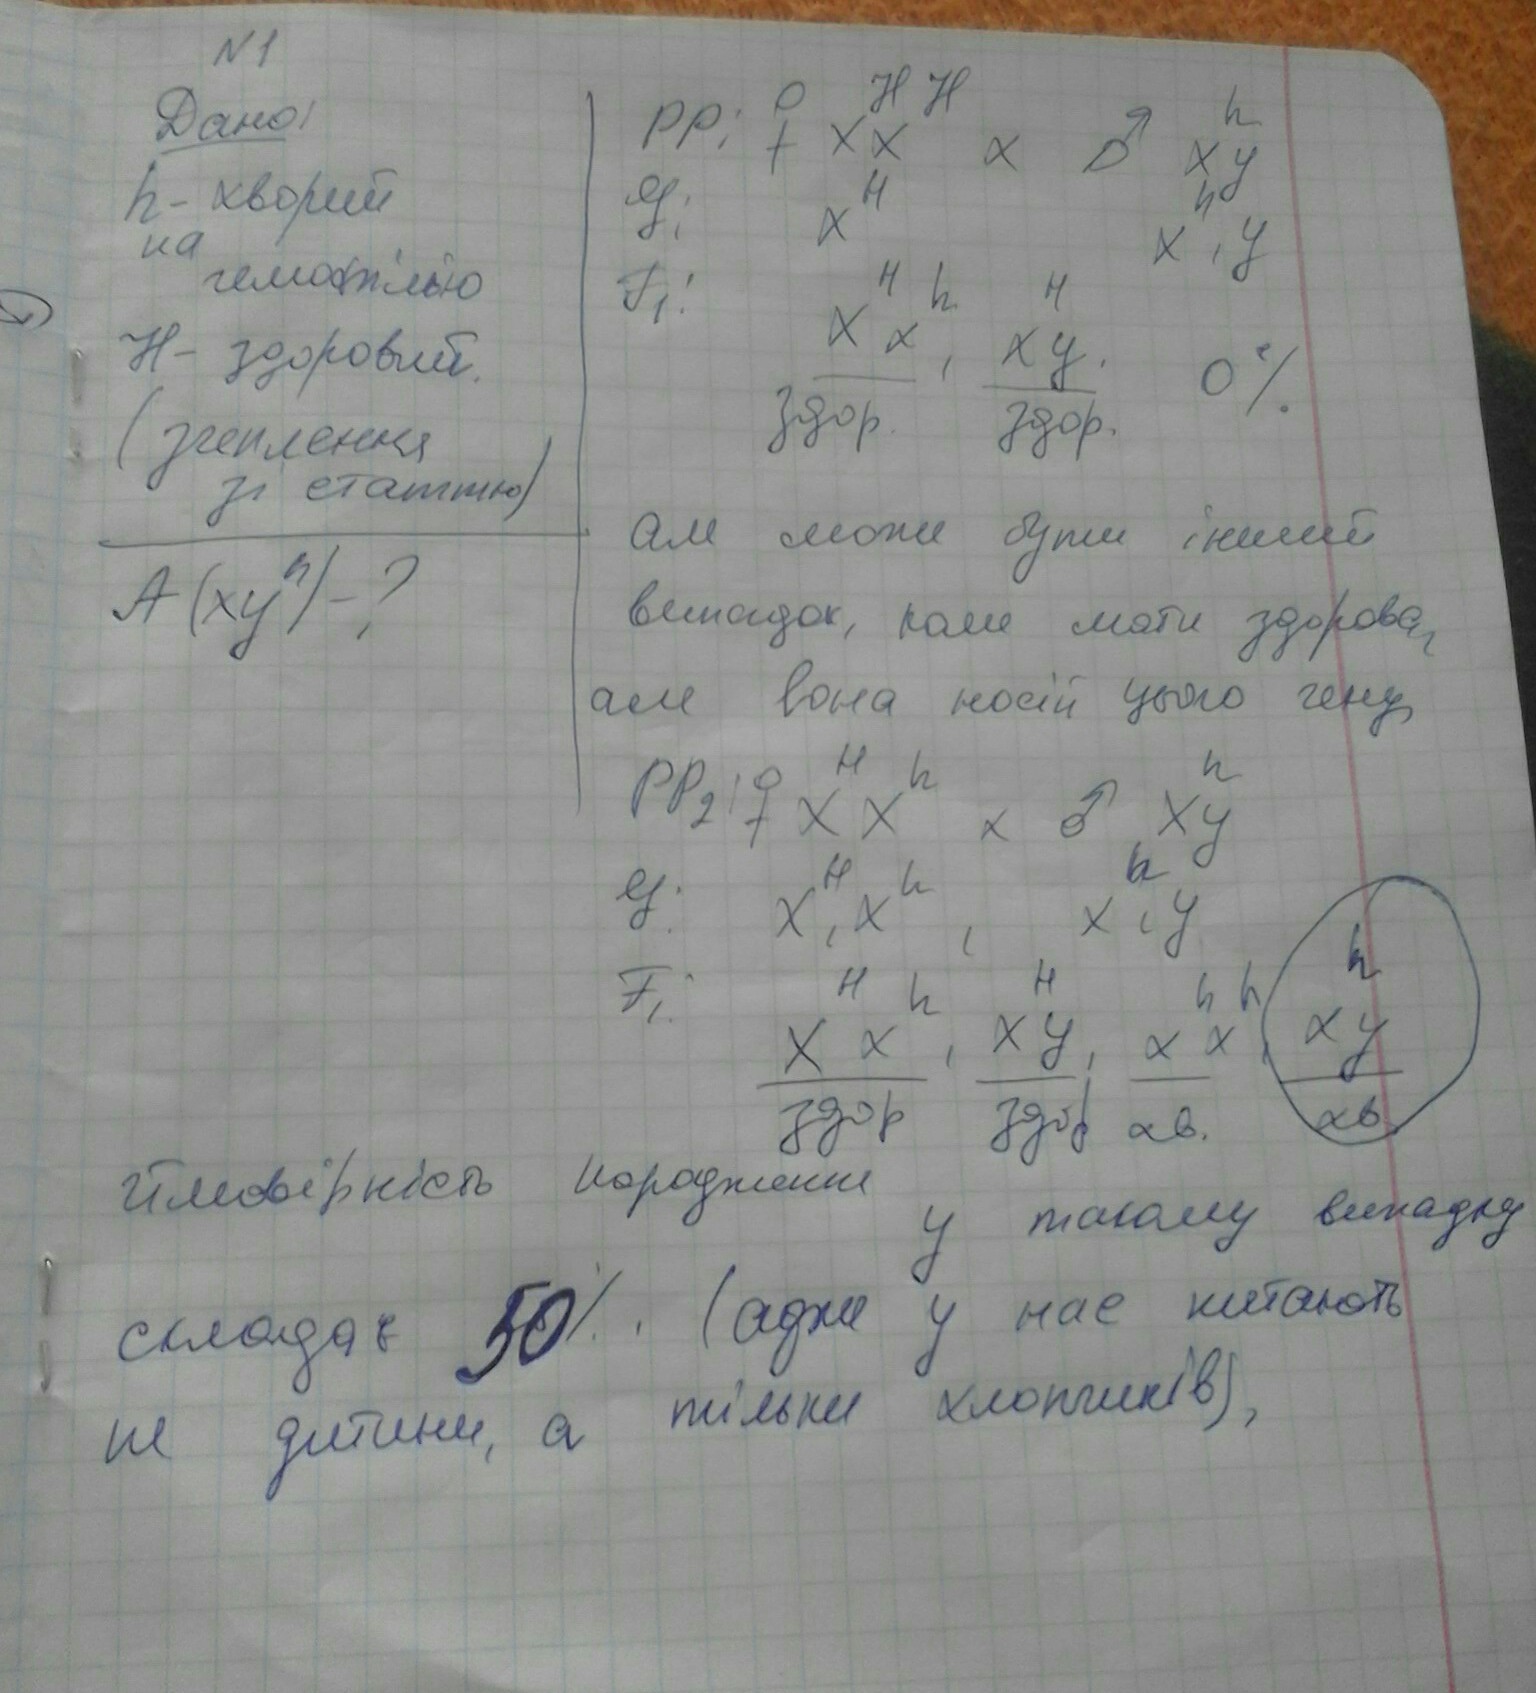 N1
Дано:
h - хворий
на
гемофілію
H - здоровий.
(зчеплення
зі статтю)
A (xyʰ) - ?
PP: ♀ XᴴXᴴ x ♂ Xʰy
G: Xᴴ Xʰ, y
F₁: XᴴXʰ, Xᴴy. 0%.
здор. здор.
але може бути інший
випадок, коли мати здорова,
але вона носій цього гену
PP₂: ♀ XᴴXʰ x ♂ Xʰy
G: Xᴴ, Xʰ, Xʰ, y
F₁: XᴴXʰ, Xᴴy, XʰXʰ, Xʰy
здор здор хв. хв.
Ймовірність народження
у такому випадку
складає 50%. (адже у нас питають
не дитини, а тільки хлопчиків),